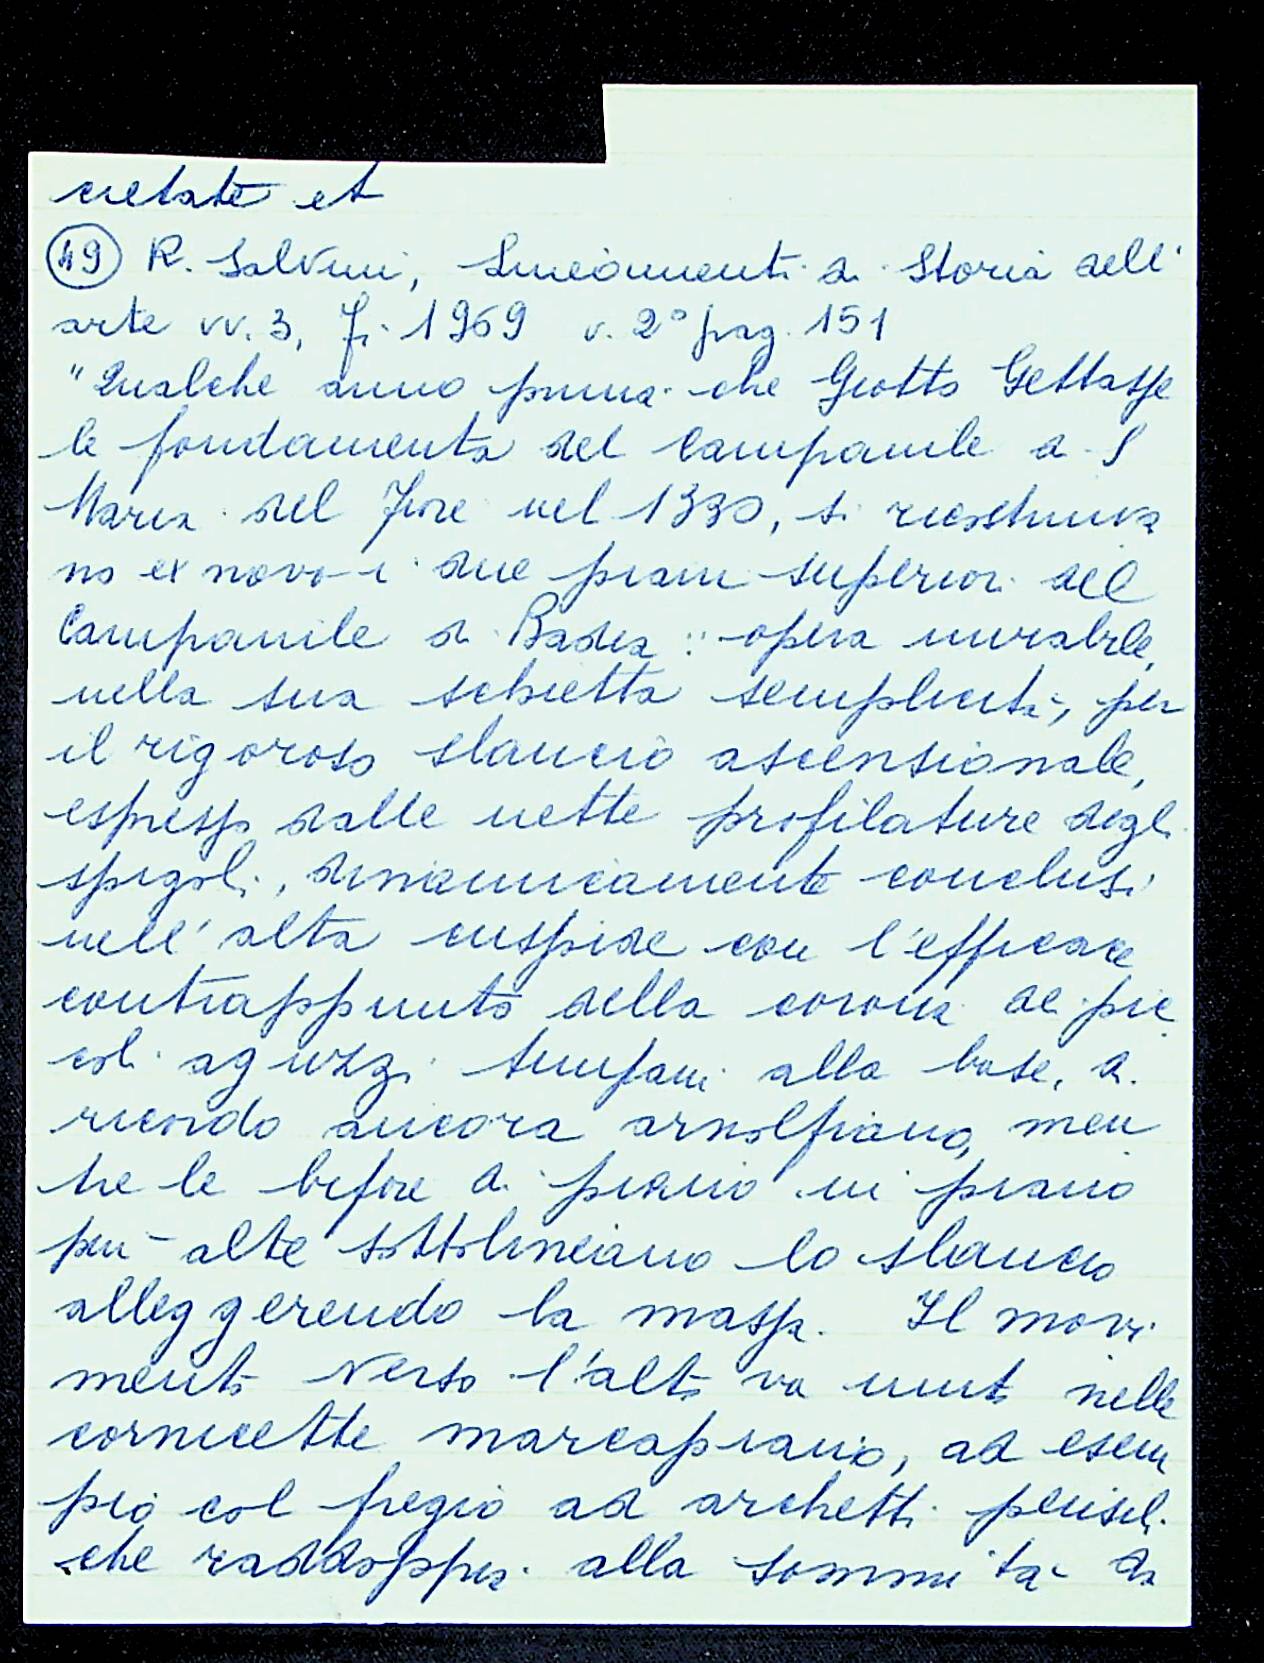 cietate et
49 R. Salvini, Lineamenti di Storia dell'
arte vv. 3, Fi. 1969 v. 2° pag. 151
"Qualche anno prima che Giotto Gettasse
le fondamenta del Campanile di S
Maria del Fiore nel 1330, si ricostruiva
no ex novo i due piani superiori del
Campanile di Badia: opera mirabile,
nella sua schietta semplicità, per
il rigoroso slancio ascensionale,
espresso dalle nette profilature degli
spigoli, dinamicamente conclusi
nell'alta cuspide con l'efficace
contrappunto della corona di pic
coli aguzzi timpani alla base, di
ricordo ancora arnolfiano, men
tre le bifore di piano in piano
più alte sottolineano lo slancio
alleggerendo la massa. Il movi
mento verso l'alto va unito nelle
cornicette marcapiano, ad esem
pio col fregio ad archetti pensili
che raddoppia alla sommità da